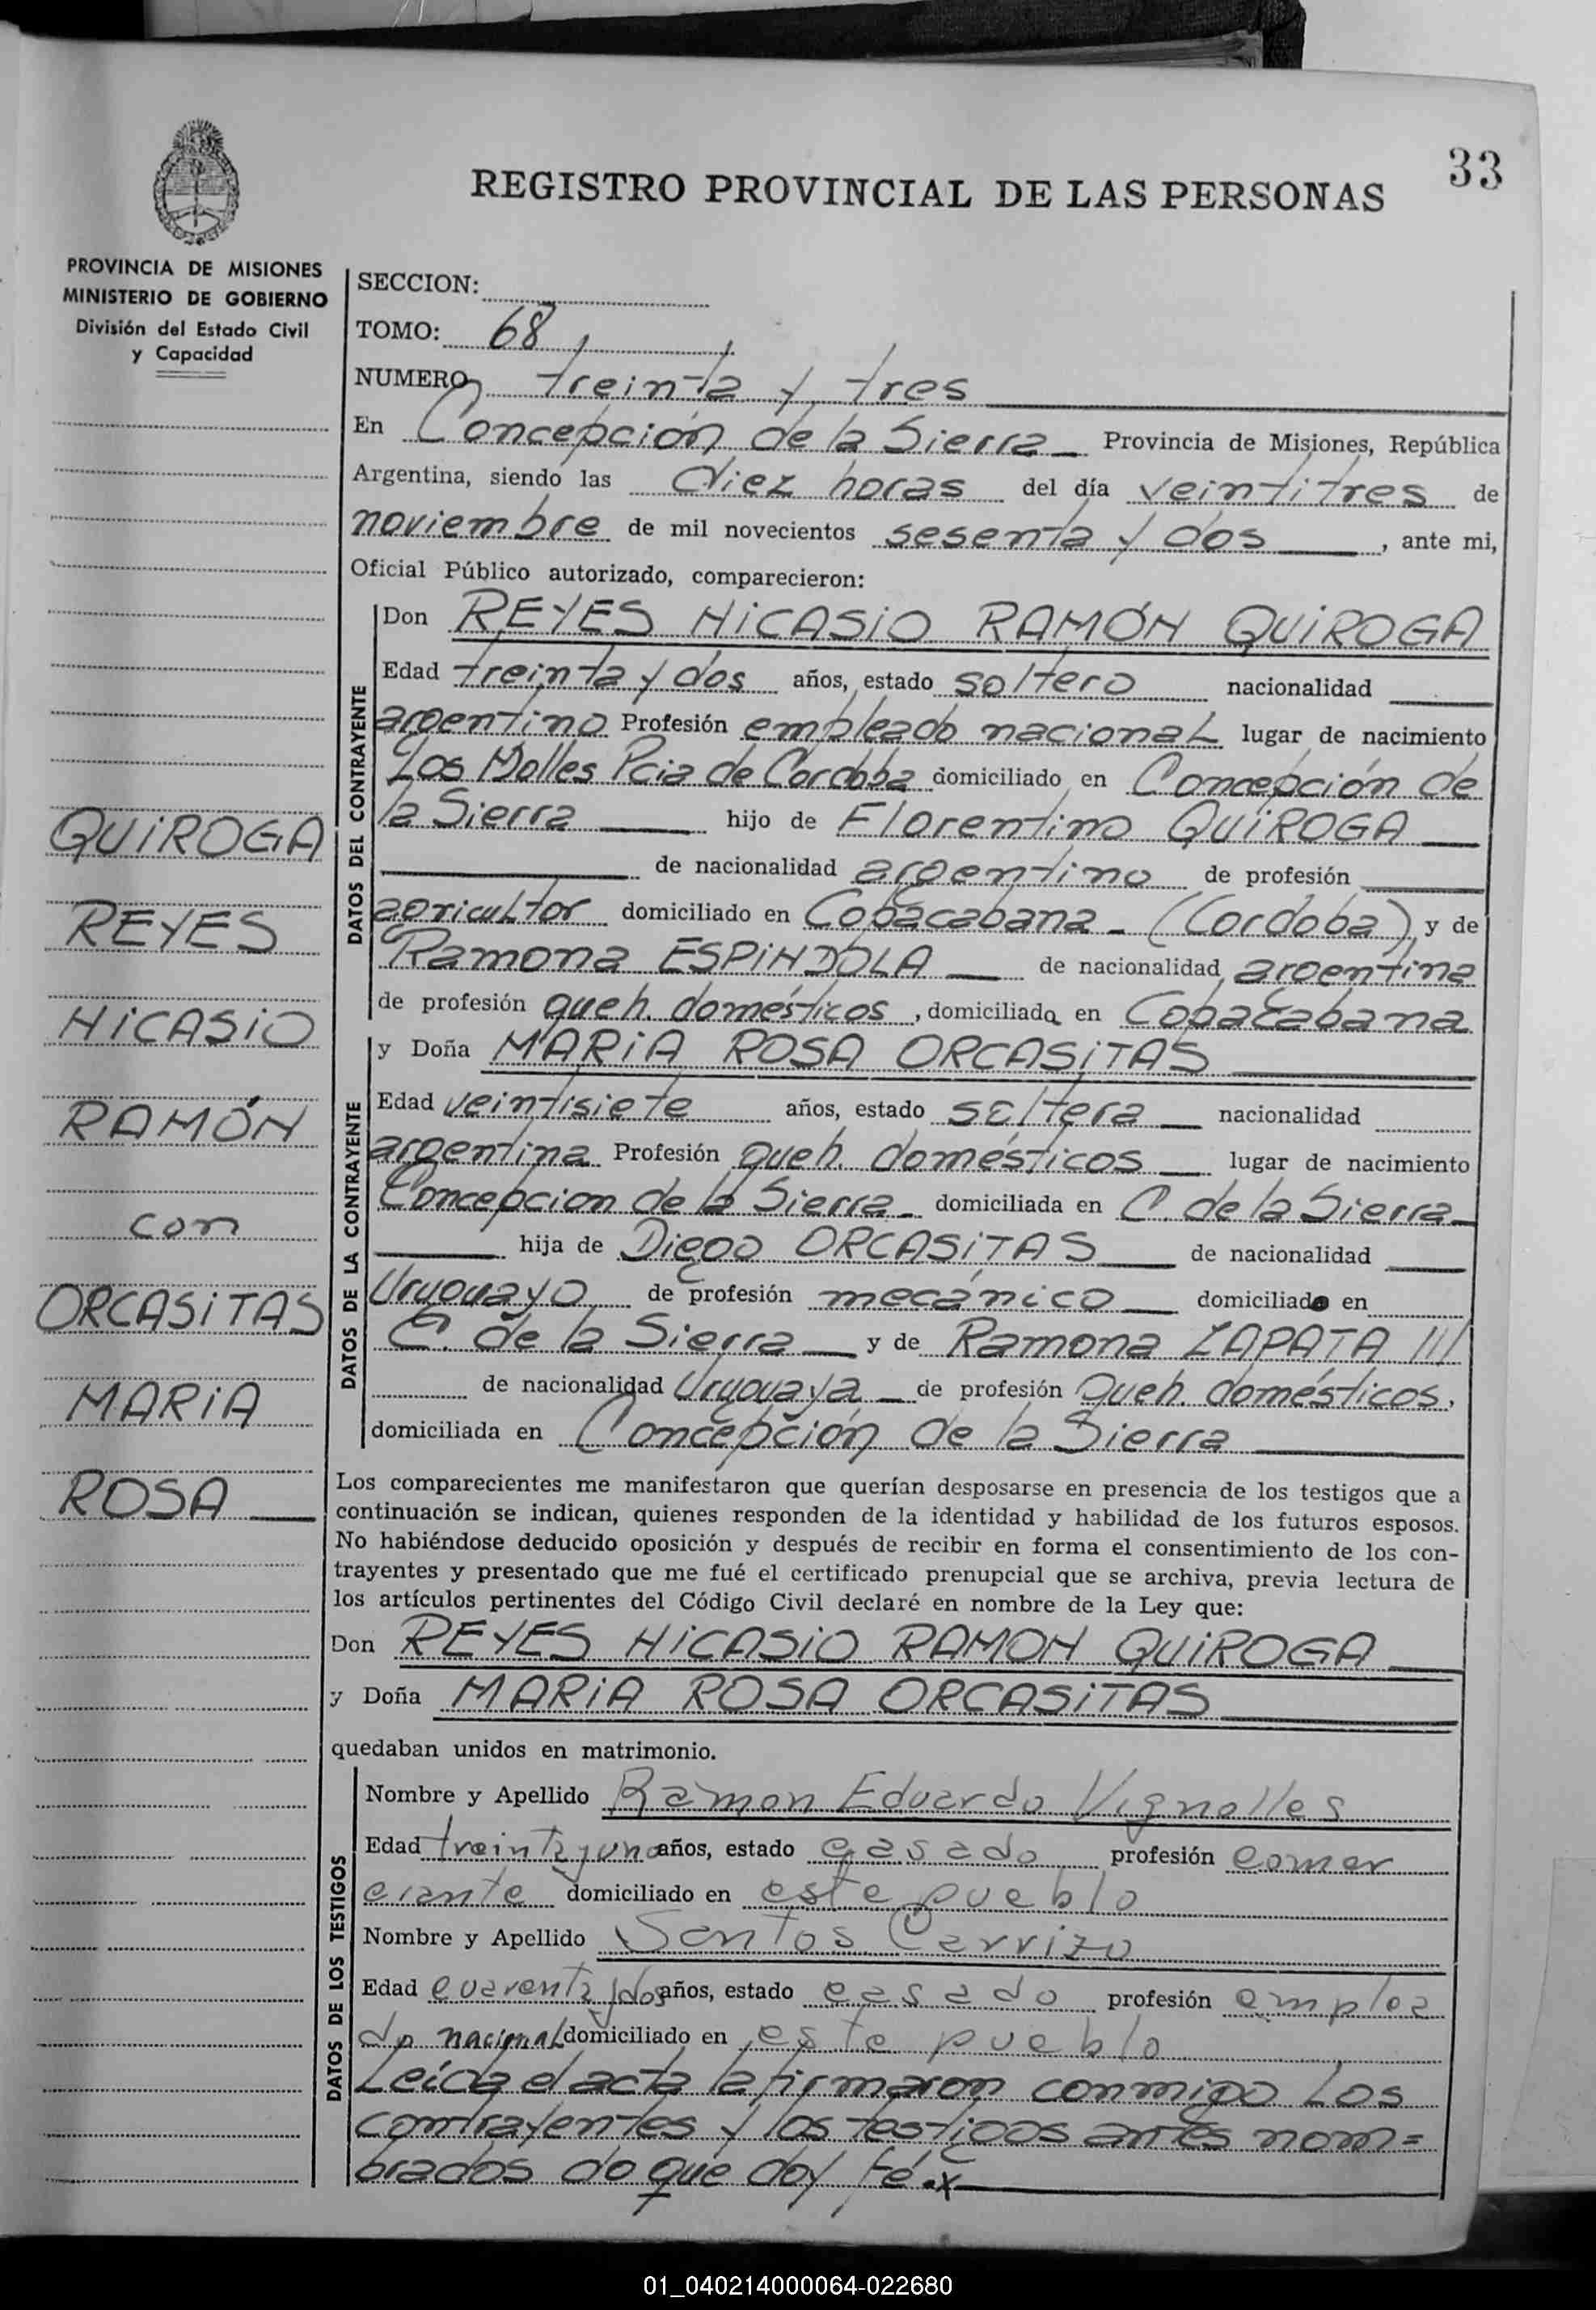 33
REGISTRO PROVINCIAL DE LAS PERSONAS
PROVINCIA DE MISIONES
MINISTERIO DE GOBIERNO
División del Estado Civil
y Capacidad
SECCION:
TOMO: 68
NUMERO treinta y tres
En Concepción de la Sierra Provincia de Misiones, República
Argentina, siendo las diez horas del día veintitres de
noviembre de mil novecientos sesenta y dos, ante mi,
Oficial Público autorizado, comparecieron:
DATOS DEL CONTRAYENTE
Don REYES NiCASiO RAMÓN QUiROGA
Edad treinta y dos años, estado soltero nacionalidad
argentino Profesión empleado nacional lugar de nacimiento
Los Molles Pcia de Cordoba domiciliado en Concepción de
la Sierra hijo de Florentino QUiROGA
de nacionalidad argentino de profesión
agricultor domiciliado en Copacabana - (Cordoba) y de
Ramona ESPiNDOLA de nacionalidad argentina
de profesión queh. domésticos, domiciliada en Copacabana
DATOS DE LA CONTRAYENTE
y Doña MARiA ROSA ORCASiTAS
Edad veintisiete años, estado soltera nacionalidad
argentina Profesión queh. domésticos lugar de nacimiento
Concepcion de la Sierra domiciliada en C. de la Sierra
hija de Diego ORCASiTAS de nacionalidad
Uruguayo de profesión mecánico domiciliado en
C. de la Sierra y de Ramona ZAPATA ///
de nacionalidad Uruguaya de profesión Queh. domésticos,
domiciliada en Concepción de la Sierra
QUiROGA
REYES
NiCASiO
RAMÓN
con
ORCASiTAS
MARiA
ROSA
Los comparecientes me manifestaron que querían desposarse en presencia de los testigos que a
continuación se indican, quienes responden de la identidad y habilidad de los futuros esposos.
No habiéndose deducido oposición y después de recibir en forma el consentimiento de los con-
trayentes y presentado que me fué el certificado prenupcial que se archiva, previa lectura de
los artículos pertinentes del Código Civil declaré en nombre de la Ley que:
Don REYES NiCASiO RAMON QUiROGA
y Doña MARiA ROSA ORCASiTAS
quedaban unidos en matrimonio.
DATOS DE LOS TESTIGOS
Nombre y Apellido Ramon Eduardo Vignolles
Edad treinta y uno años, estado casado profesión comer
ciante domiciliado en este pueblo
Nombre y Apellido Santos Carrizo
Edad cuarenta y dos años, estado casado profesión emplea
do nacional domiciliado en este pueblo
Leida el acta la firmaron conmigo los
contrayentes y los testigos antes nom=
brados do que doy fé.x
01_040214000064-022680